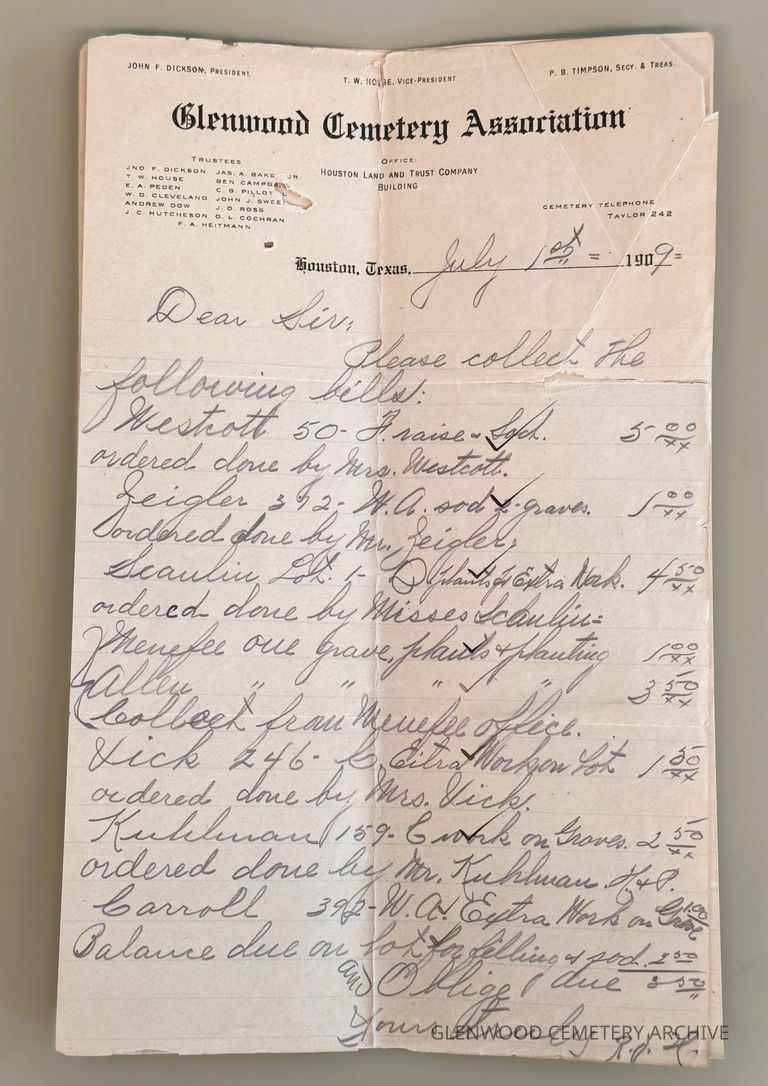 JOHN F. DICKSON, PRESIDENT.
T. W. HOUSE, VICE-PRESIDENT
P. B. TIMPSON, SECY. & TREAS.
Glenwood Cemetery Association
TRUSTEES
JNO. F. DICKSON JAS. A. BAKER JR.
T. W. HOUSE BEN CAMPBELL
E. A. PEDEN C. G. PILLOT
W. D. CLEVELAND JOHN J. SWEE
ANDREW DOW J. O. ROSS
J. C. HUTCHESON O. L. COCHRAN
F. A. HEITMANN
OFFICE:
HOUSTON LAND AND TRUST COMPANY
BUILDING
CEMETERY TELEPHONE
TAYLOR 242
Houston, Texas, July 1st = 1909=
Dear Sir;
Please collect the
following bills:
Westcott 50- F. raise & Sod. 5 00/xx
ordered done by Mrs. Westcott.
Zeigler 392- W. A. sod 2- graves. 1 00/xx
ordered done by Mr. Zeigler;
Scanlin Lot. 1- plants & Extra Work. 4 50/xx
ordered done by Misses Scanlin=
Menefee one grave, plants & planting 1 00/xx
Allen " " " " 3 50/xx
Collect from Menefee office.
Vick 246- C. Extra Work on Lot 1 50/xx
ordered done by Mrs. Vick.
Kuhlman 159- C work on Graves. 2 50/xx
ordered done by Mr. Kuhlman. H. & P.
Carroll 392- W. A. Extra Work on Grave 1.00
Balance due on Lot for filling & sod. 2 50
and Oblige due 3 50/"
Yours Truly
GLENWOOD CEMETERY ARCHIVE